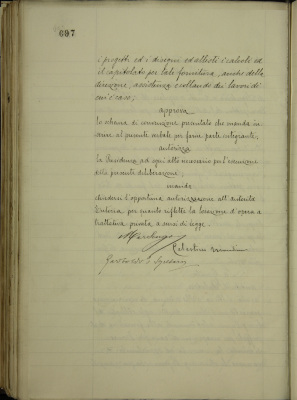 697
i progetti ed i disegni ed allestì i calcoli ed
il capitolato per tale fornitura, anche della
direzione, assistenza e collaudo dei lavori di
cui è caso;
approva
lo schema di convenzione presentato che manda in-
serire al presente verbale per farne parte integrante,
autorizza
la Presidenza ad ogni atto necessario per l'esecuzione
della presente deliberazione;
manda
chiedersi l'opportuna autorizzazione all'autorità
tutoria per quanto riflette la locazione d'opera a
trattativa privata, a sensi di legge.